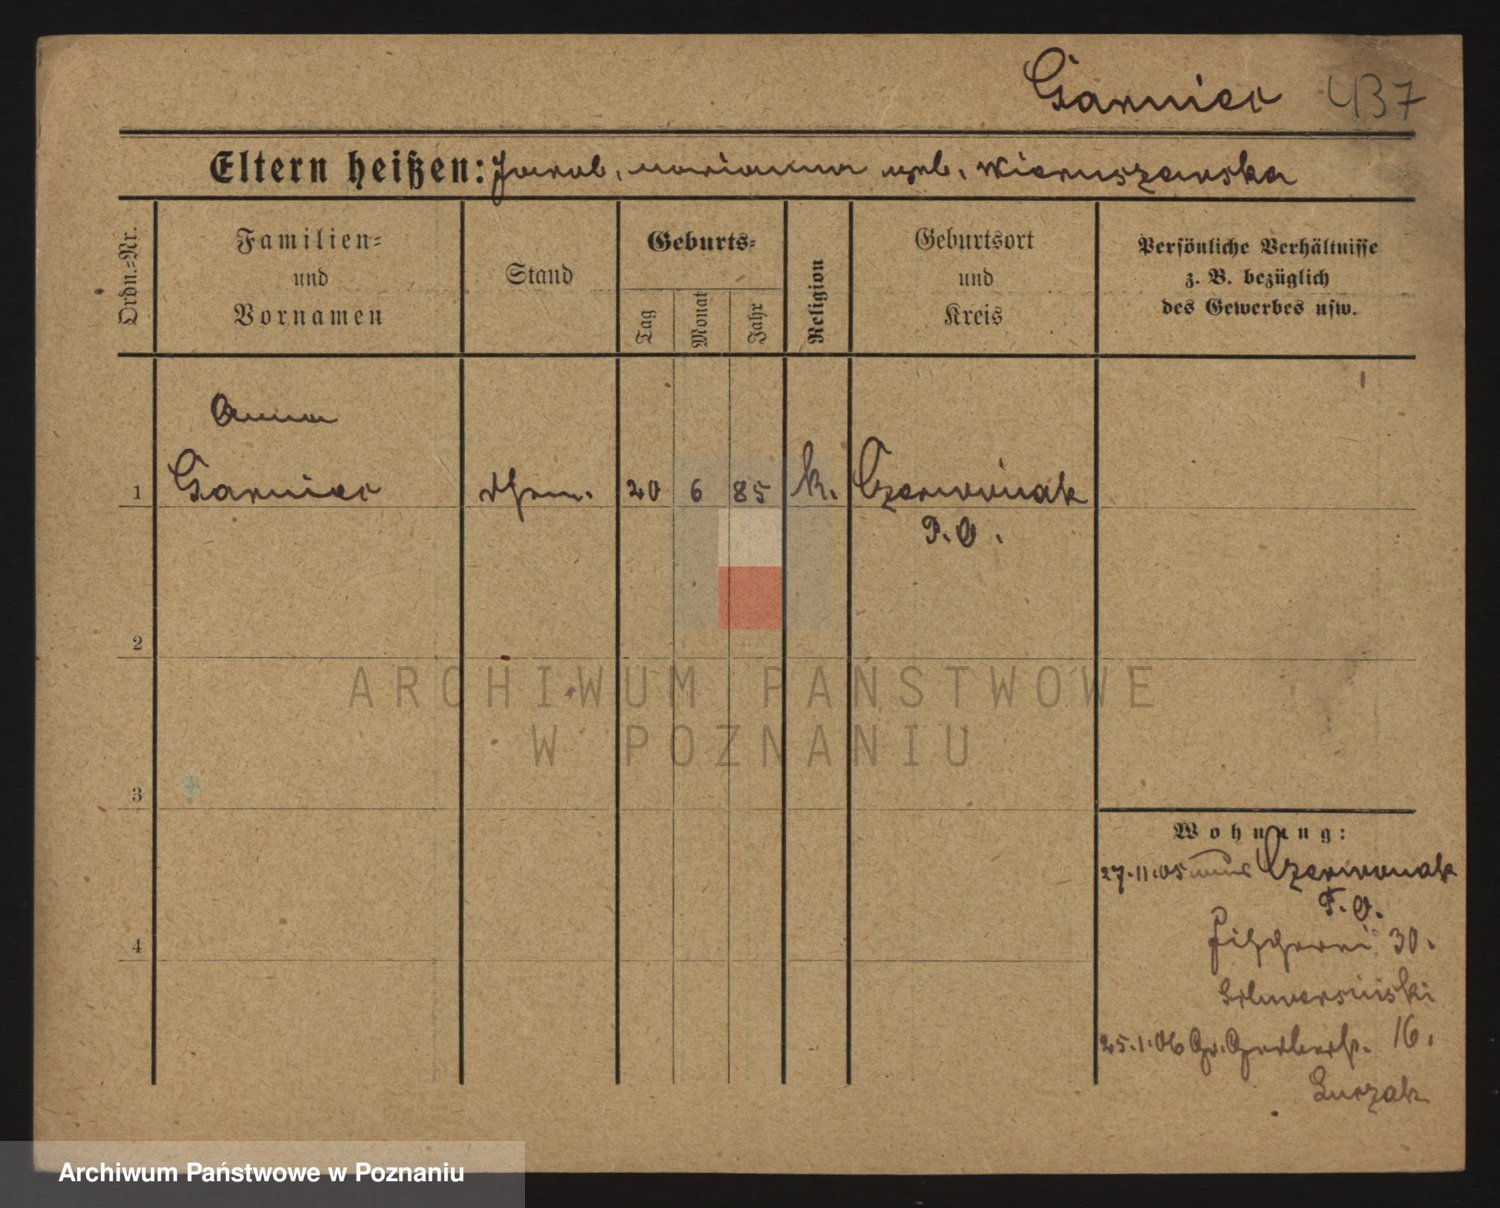 Garniec 437
Eltern heißen: Jacob, Marianna geb. Wieruszewska
Ordn.-Nr.
Familien-
und
Vornamen
Stand
Geburts-
Tag
Monat
Jahr
Religion
Geburtsort
und
Kreis
Persönliche Verhältnisse
z. B. bezüglich
des Gewerbes usw.
Anna
1 Garniec 20 6 85 k. Czerwonak
P. O.
2
3
4
ARCHIWUM PAŃSTWOWE
W POZNANIU
Wohnung:
27.11.05 Czerwonak
P. O.
Fischerei 30.
25.1.06 Gr. Gerberstr. 16.
Archiwum Państwowe w Poznaniu